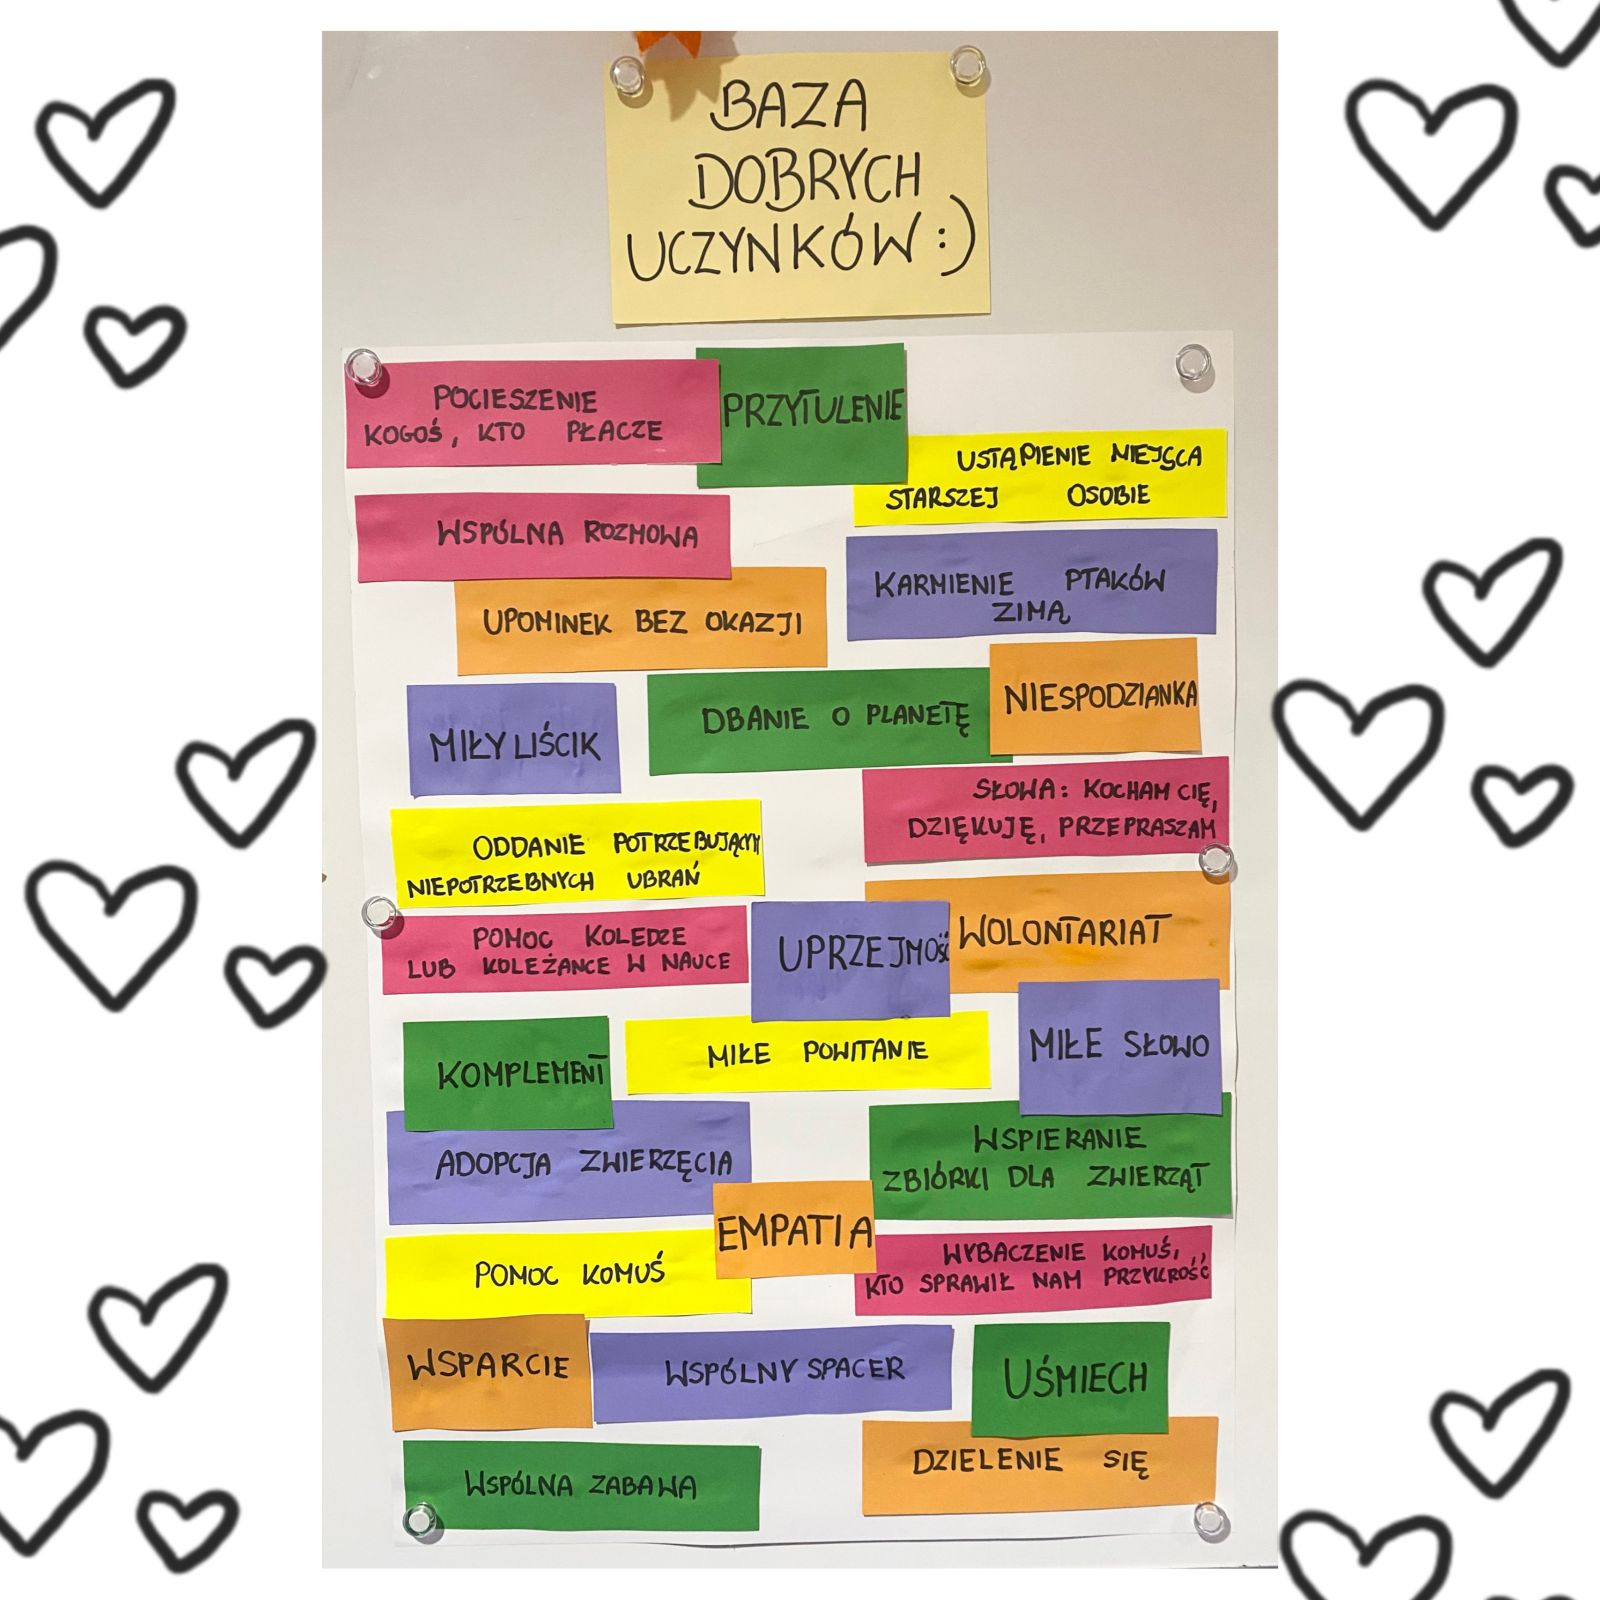 BAZA
DOBRYCH
UCZYNKÓW :)
POCIESZENIE
KOGOŚ, KTO PŁACZE
PRZYTULENIE
USTĄPIENIE MIEJSCA
STARSZEJ OSOBIE
WSPÓLNA ROZMOWA
KARMIENIE PTAKÓW
ZIMĄ
UPOMINEK BEZ OKAZJI
NIESPODZIANKA
DBANIE O PLANETĘ
MIŁY LIŚCIK
SŁOWA: KOCHAM CIĘ,
DZIĘKUJĘ, PRZEPRASZAM
ODDANIE POTRZEBUJĄCYM
NIEPOTRZEBNYCH UBRAŃ
POMOC KOLEDZE
LUB KOLEŻANCE W NAUCE
UPRZEJMOŚĆ
WOLONTARIAT
KOMPLEMENT
MIŁE POWITANIE
MIŁE SŁOWO
ADOPCJA ZWIERZĘCIA
WSPIERANIE
ZBIÓRKI DLA ZWIERZĄT
EMPATIA
POMOC KOMUŚ
WYBACZENIE KOMUŚ,
KTO SPRAWIŁ NAM PRZYKROŚĆ
WSPARCIE
WSPÓLNY SPACER
UŚMIECH
DZIELENIE SIĘ
WSPÓLNA ZABAWA